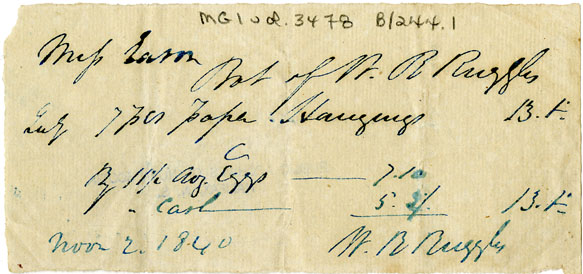 MG1 vol. 3478 B/244.1
Miss Eason
Bot of W. R Ruggles
July 7 pcs paper Hangings 13.
By 11½ doz. Eggs 7.10
" Cash 5. 13.
Novr 2. 1840 W. R Ruggles